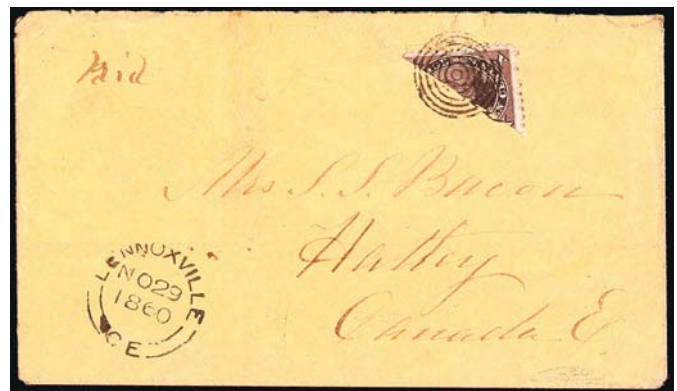 Paid
Mrs. S. S. Bacon
Hatley
Canada E.
LENNOXVILLE
NO 29
1860
C E